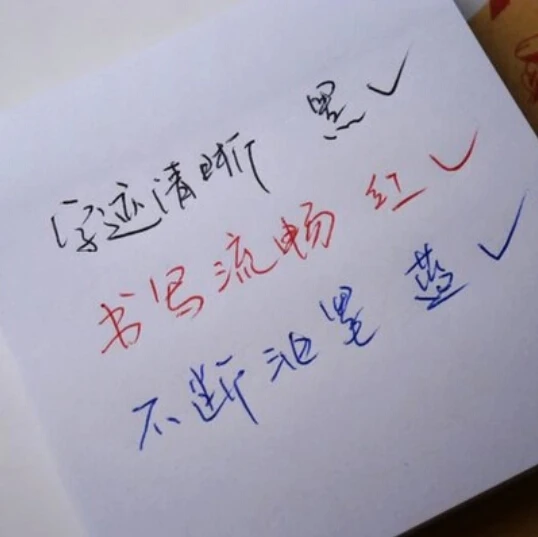 字迹清晰 黑✓
书写流畅 红✓
不断油墨 蓝✓